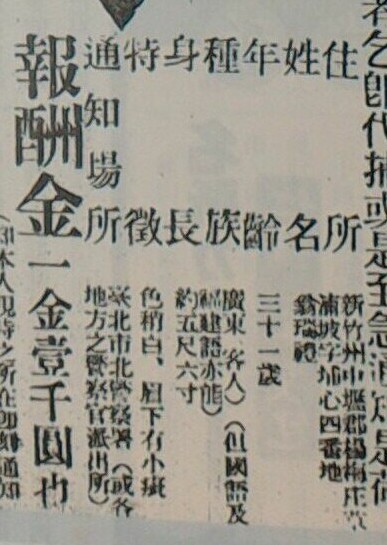 者乞即代捕或是至急通知是荷
住所 新竹州中壢郡楊梅庄草
湳坡字埔心四番地
姓名 翁瑞禮
年齡 三十一歲
種族 廣東(客人)(但國語及
福建語亦能)
身長 約五尺六寸
特徵 色稍白、眉下有小痣
通知場所 臺北市北警察署(或各
地方之警察官派出所)
報酬金 一金壹千圓也
本人現時之所在即刻通知